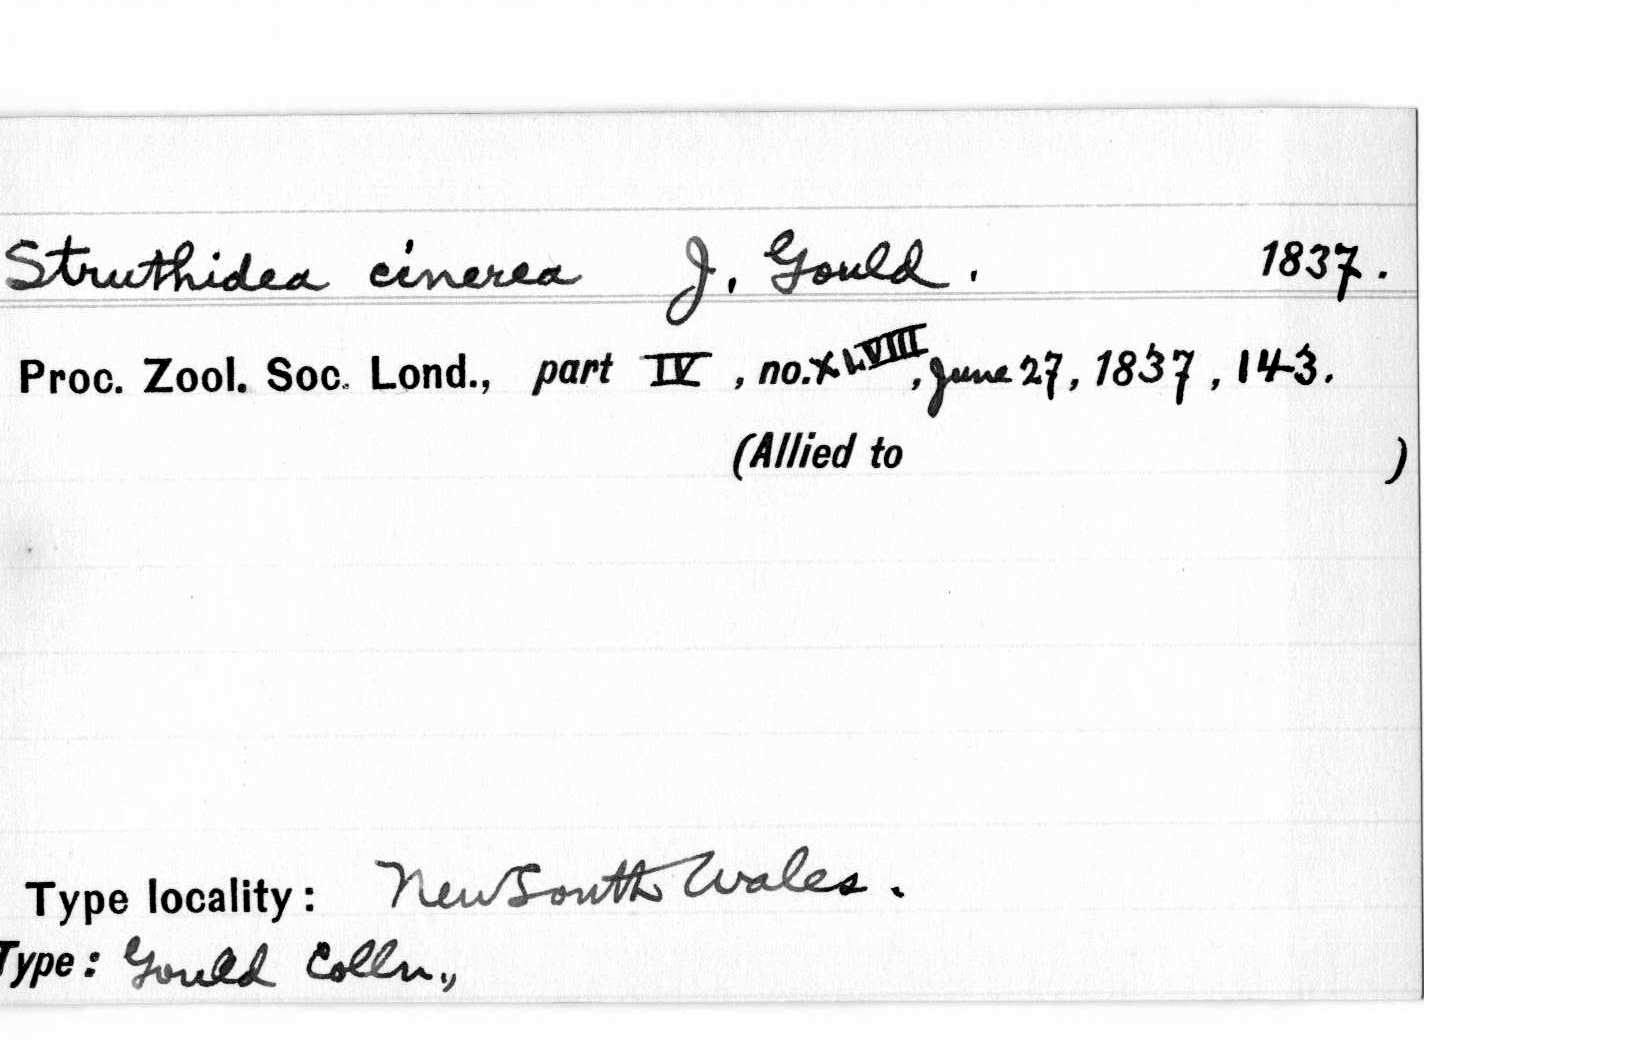 Struthidea cinerea J. Gould. 1837.
Proc. Zool. Soc. Lond., part IV, no. XLVIII, June 27, 1837, 143.
(Allied to )
Type locality: New South Wales.
Type: Gould Colln.,